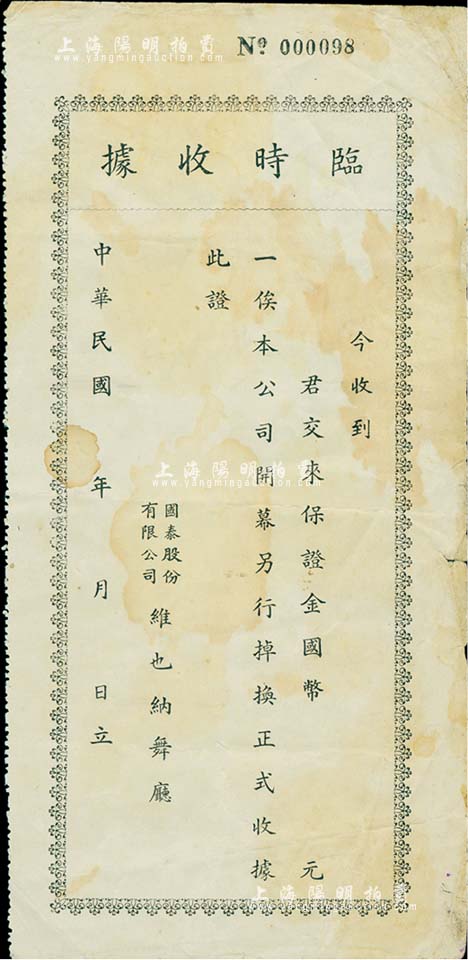 上海陽明拍賣
www.yangmingauction.com
Nº 000098
臨時收據
今收到
君交來保證金國幣 元
一俟本公司開幕另行掉換正式收據
此證
國泰股份有限公司 維也納舞廳
中華民國 年 月 日立
上海陽明拍賣
www.yangmingauction.com
上海陽明拍賣
www.yangmingauction.com